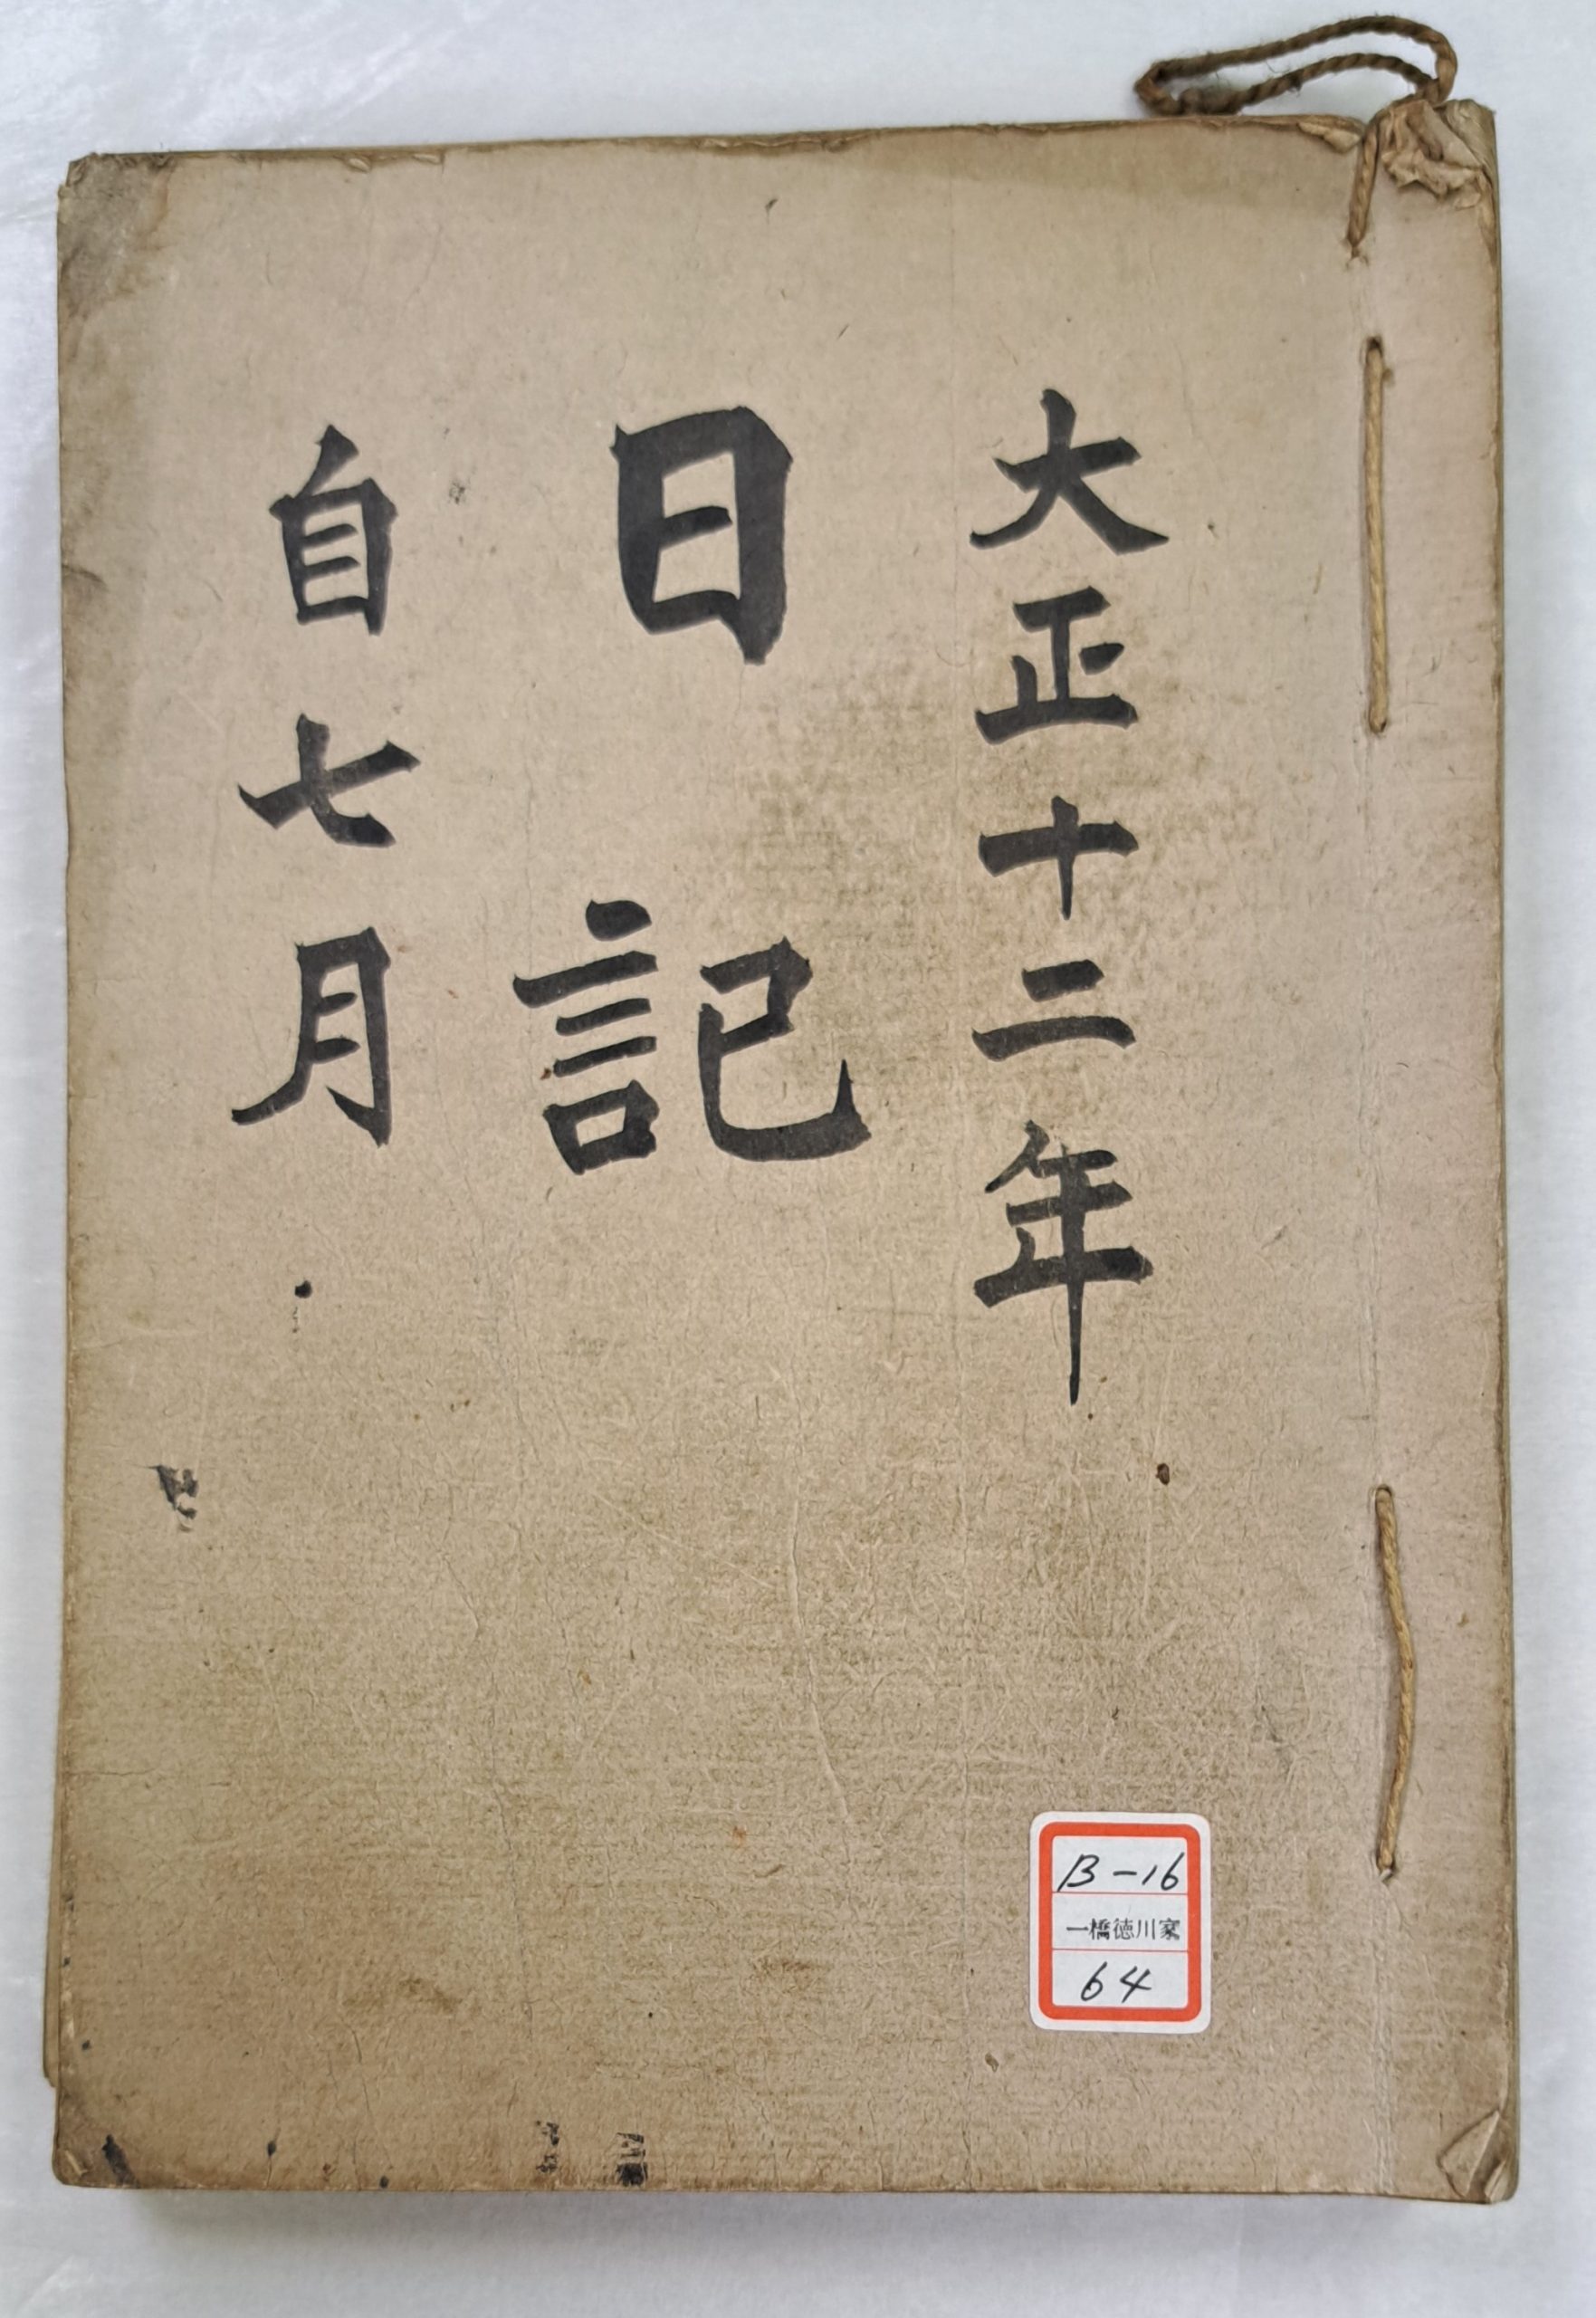 大正十二年
日記
自七月
B-16
一橋徳川家
64